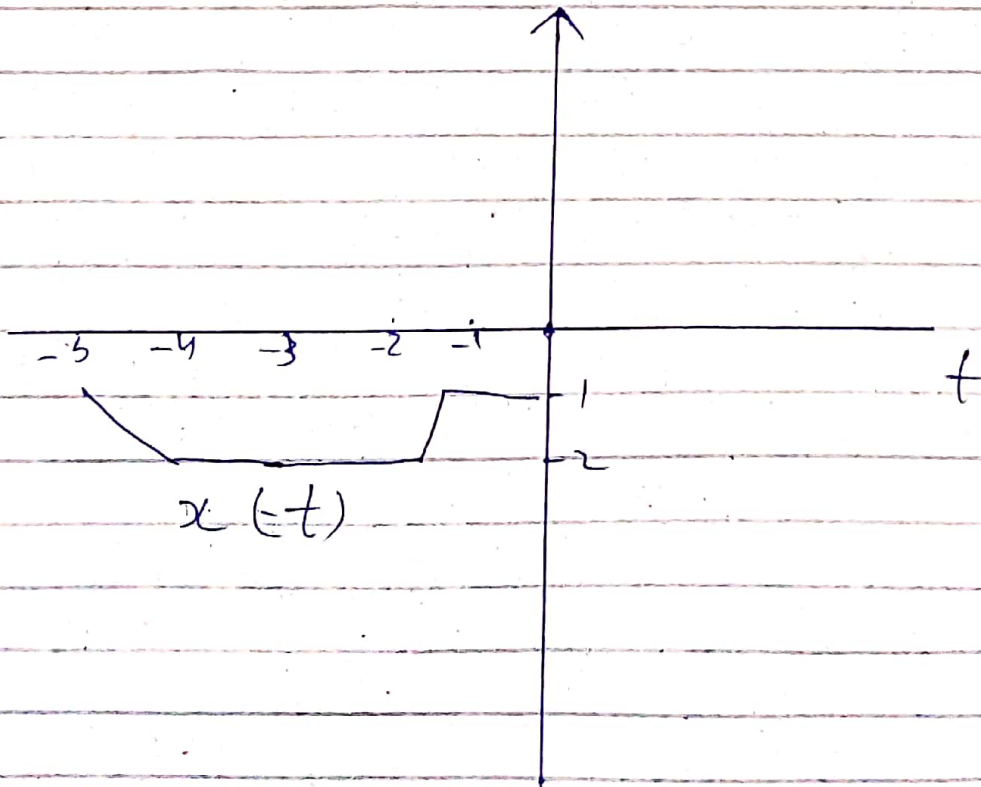 -5 -4 -3 -2 -1
t
1
-2
x (-t)